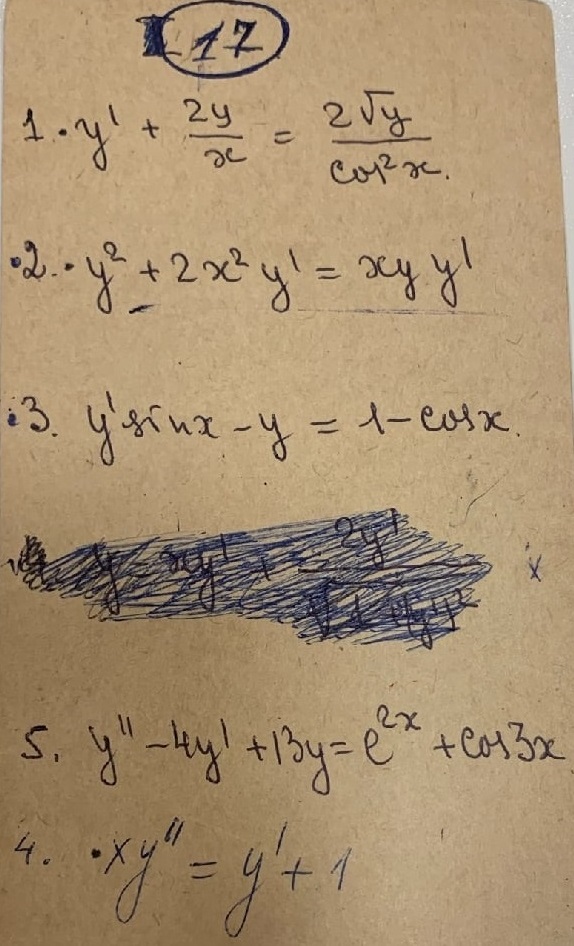 17
1. y' + 2y/x = 2√y/cos²x.
2. y² + 2x² y' = xy y'
3. y' sinx - y = 1 - cosx.
5. y'' - 4y' + 13y = e^2x + cos3x
4. xy'' = y' + 1